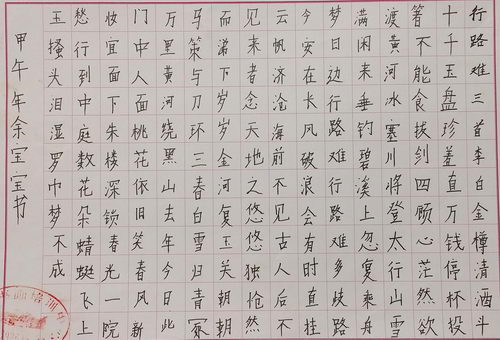 行路难三首李白金樽清酒斗
十千玉盘珍羞直万钱停杯投
箸不能食拔剑四顾心茫然欲
渡黄河冰塞川将登太行山雪
满闲来垂钓碧溪上忽复乘舟
梦日边行路难行路难多歧路
今安在长风破浪会有时直挂
云帆济沧海前不见古人后不
见来者念天地之悠悠独怆然
而涕下岁岁金河复玉关朝朝
马策与刀环三春白雪归青冢
万里黄河绕黑山去年今日此
门中人面桃花依旧笑春风新
妆宜面下朱楼深锁春光一院
愁行到中庭数花朵蜻蜓飞上
玉搔头泪湿罗巾梦不成
甲午年余宝宝书